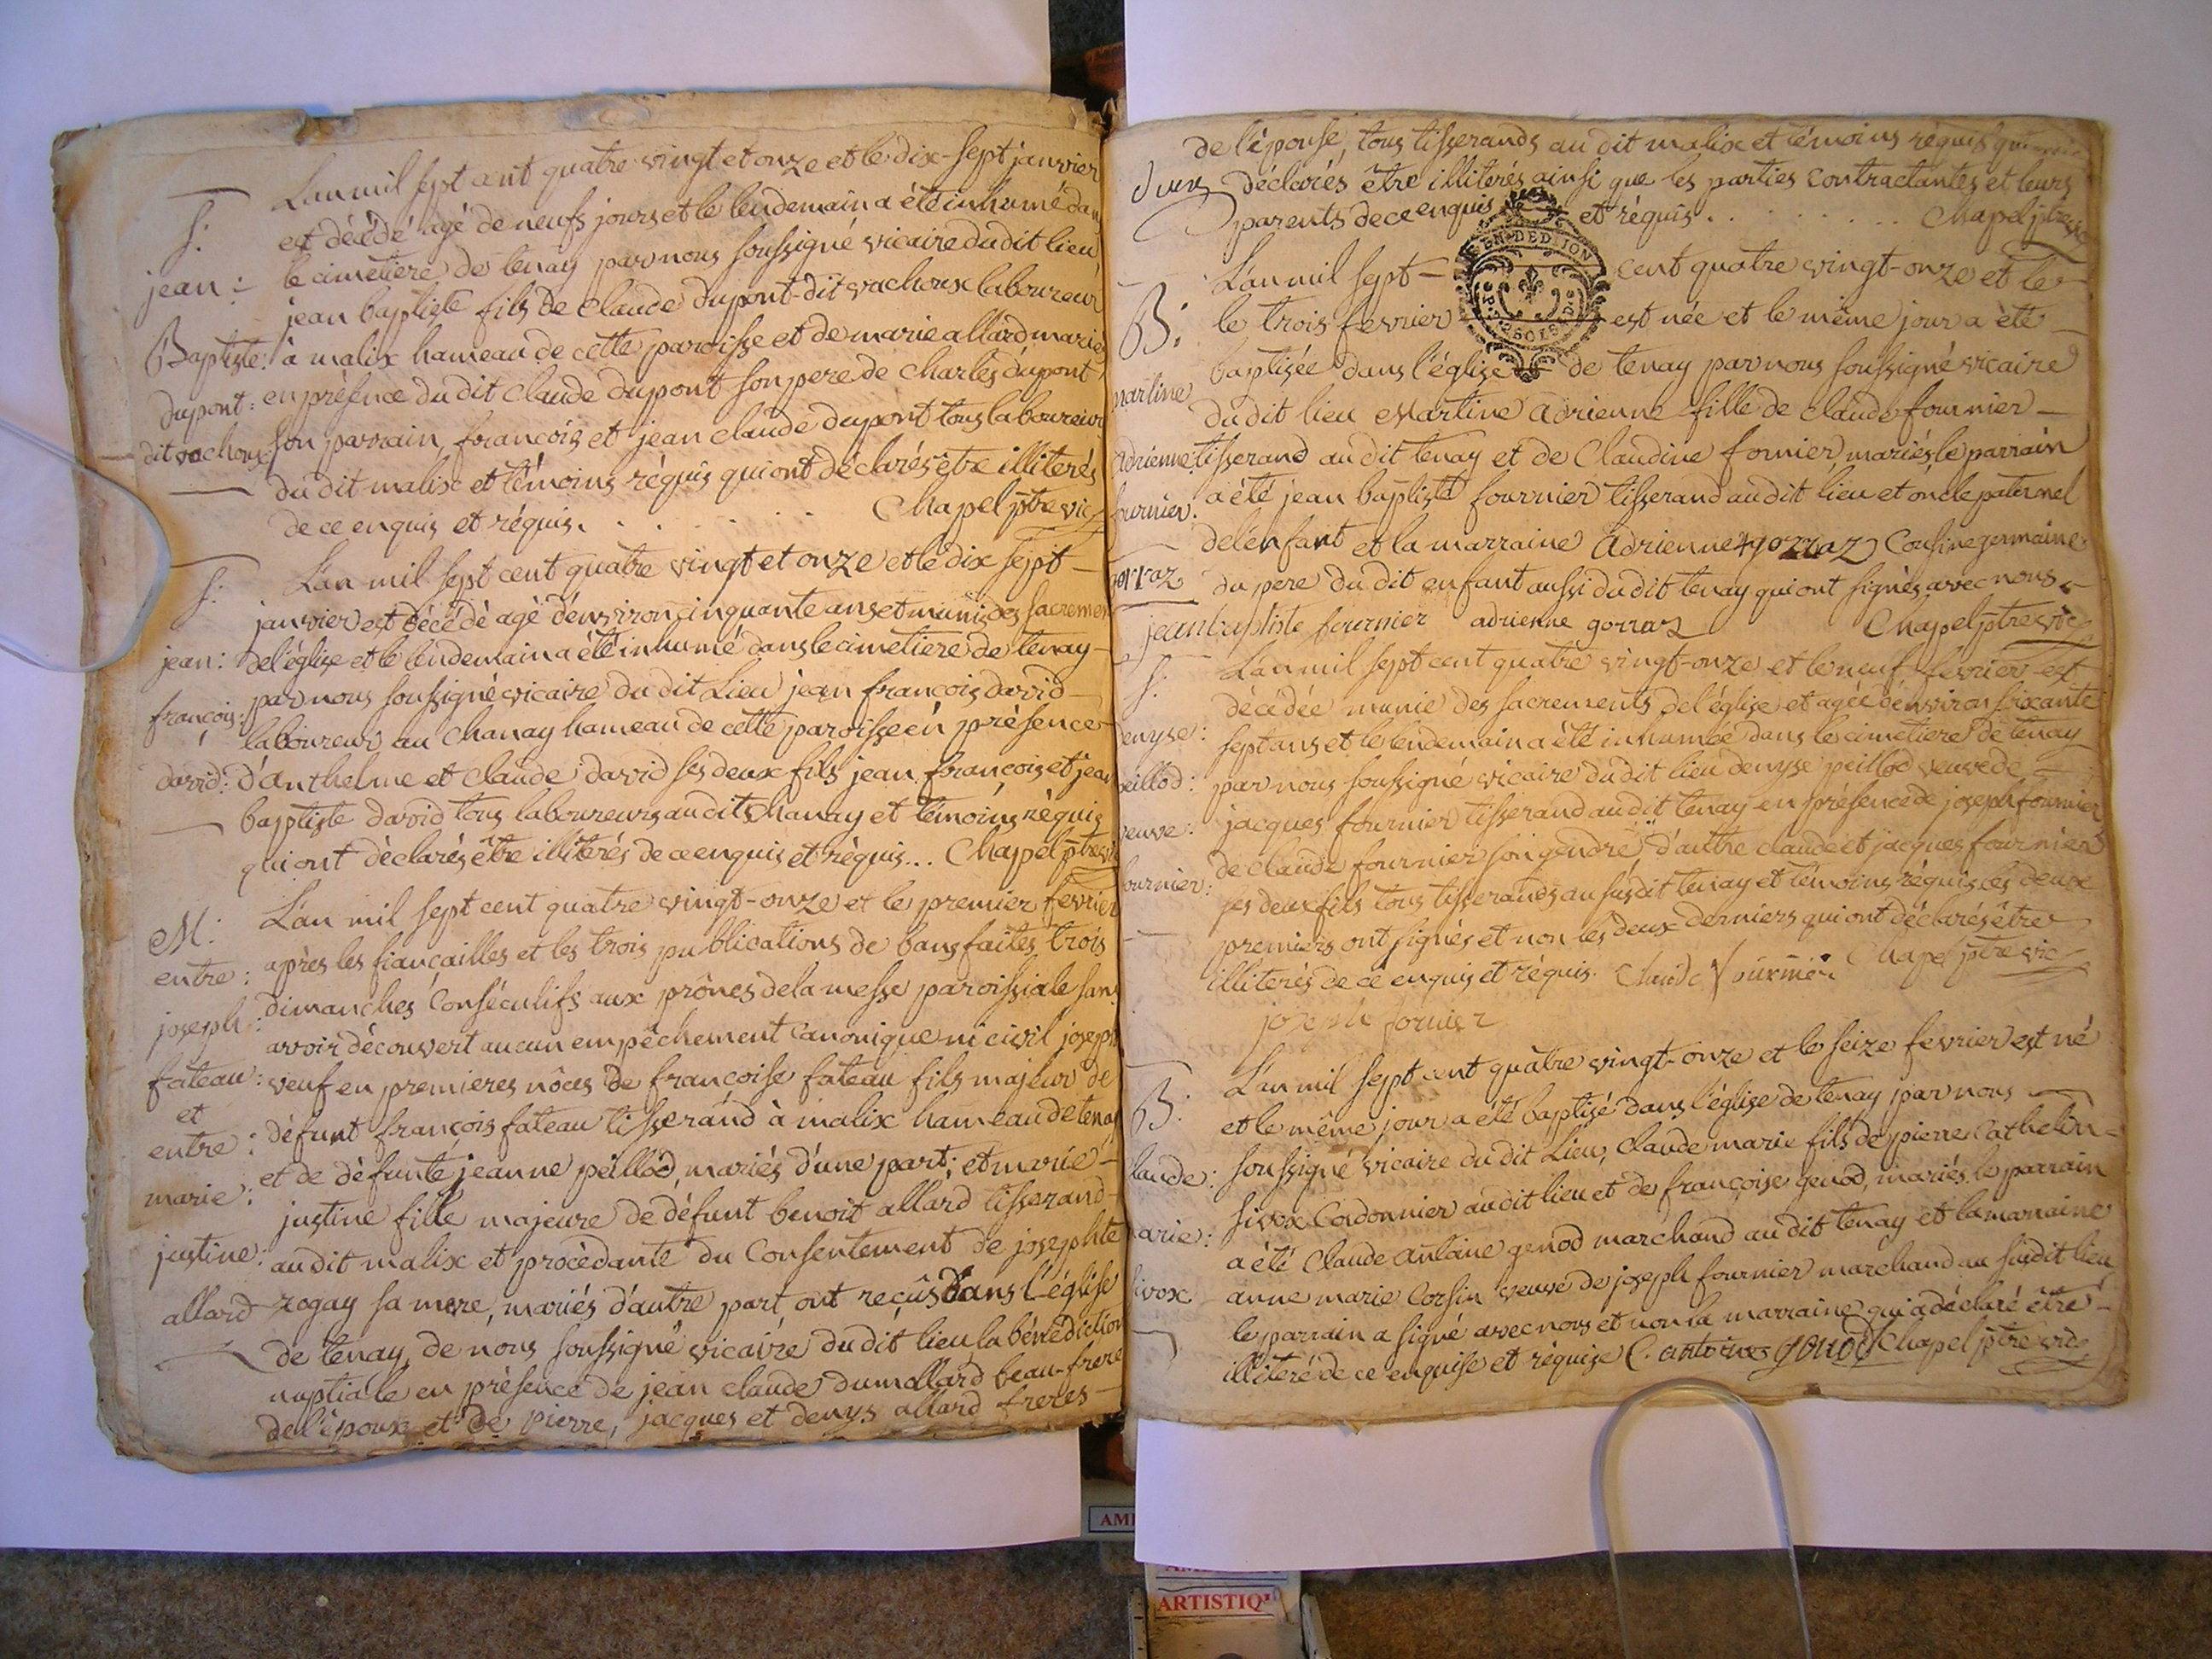 L'an mil sept cent quatre vingt et onze et le dix-sept janvier
S: est décédé agé de neufs jours et le lendemain a été inhumé dan
jean: le cimetiere de tenay par nous soussigné vicaire du dit lieu
jean baptiste fils de claude dupont-dit vachoux laboureur
Baptiste: à malix hameau de cette paroisse et de marie allard mariés
dupont: en présence du dit Claude dupont son pere de charles dupont
dit vachoux son parrain francois et jean claude dupont tous laboureurs
du dit malix et témoins réquis qui ont déclarés être illiterés
de ce enquis et réquis. . . . . . . Chapel ptre vic
L'an mil sept cent quatre vingt et onze et le dix sept
S: janvier est décédé agé d'environ cinquante ans et munis des sacremen
jean: de l'église et le lendemain a été inhumé dans le cimetiere de tenay
par nous soussigné vicaire du dit Lieu jean françois david
françois: laboureur au Chanay hameau de cette paroisse en présence
david: d'anthelme et claude david ses deux fils jean françois et jean
baptiste david tous laboureurs au dit Chanay et témoins réquis
qui ont déclarés être illitérés de ce enquis et réquis... Chapel ptre vic
M: L'an mil sept cent quatre vingt-onze et le premier fevrier
entre: après les fiançailles et les trois publications de bans faites trois
joseph: dimanches Conséculifs aux prônes de la messe paroissiale sans
avoir découvert aucun empêchement Canonique ni civil joseph
fateau: veuf en premieres nôces de francoise fateau fils majeur de
et
entre: défunt françois fateau tisserand à malix hameau de tenay
et de défunte jeanne peillod, mariés d'une part; et marie
marie: justine fille majeure de défunt benoit allard tisserand
justine: au dit malix et procèdante du Consentement de josephte
allard zogay sa mere, mariés d'autre part ont reçûs dans L'église
de tenay de nous soussigné vicaire du dit lieu la bénédiction
nuptiale en présence de jean claude dumollard beau-frere
de l'époux et de pierre, jacques et denys allard freres
de l'épouse, tous tisserands au dit malix et témoins réquis qui
deux déclarés être illitérés ainsi que les parties contractantes et leurs
parents de ce enquis et réquis . . . . . . . Chapel ptre vic
EN DED ION
L'an mil sept cent quatre vingt-onze et le
B: le trois fevrier est née et le même jour a été
baptisée dans l'église de tenay par nous soussigné vicaire
martine du dit lieu Martine adrienne fille de claude fournier
adrienne tisserand au dit tenay et de Claudine fornier, mariés le parrain
fournier. a été jean baptiste fournier tisserand au dit lieu et oncle paternel
de l'enfant et la marraine adrienne gorraz Cousine germaine
gorraz du pere du dit enfant aussi du dit tenay qui ont signés avec nous
jean baptiste fournier adrienne gorraz Chapel ptre vic
S: L'an mil sept cent quatre vingt-onze et le neuf fevrier est
décédée munie des sacrements de l'église et agée d'environ soixante
denyse: sept ans et le lendemain a été inhumée dans le cimetiere de tenay
peillod: par nous soussigné vicaire du dit lieu denyse peillod veuve de
veuve: jacques fournier tisserand au dit tenay en présence de joseph fournier
fournier: de Claude fournier son gendre, d'autre claude et jacques fournier
ses deux fils tous tisserands au susdit tenay et témoins réquis les deux
premiers ont signés et non les deux derniers qui ont déclarés être
illiterés de ce enquis et réquis. Claude fournier Chapel ptre vic
joseph fornier
B: L'an mil sept cent quatre vingt-onze et le seize fevrier est né
et le même jour a été baptisé dans l'église de tenay par nous
laude: soussigné vicaire du dit Lieu, claude marie fils de pierre Cathelin
arie: sivox Cordonnier au dit lieu et de françoise genod, mariés le parrain
a été Claude antoine genod marchand au dit tenay et la marraine
sivox anne marie Corsin veuve de joseph fournier marchand au susdit lieu
le parrain a signé avec nous et non la marraine qui a déclaré être
illiteré de ce enquise et réquise C. antoine genod Chapel ptre vic
AM
ARTISTIQ